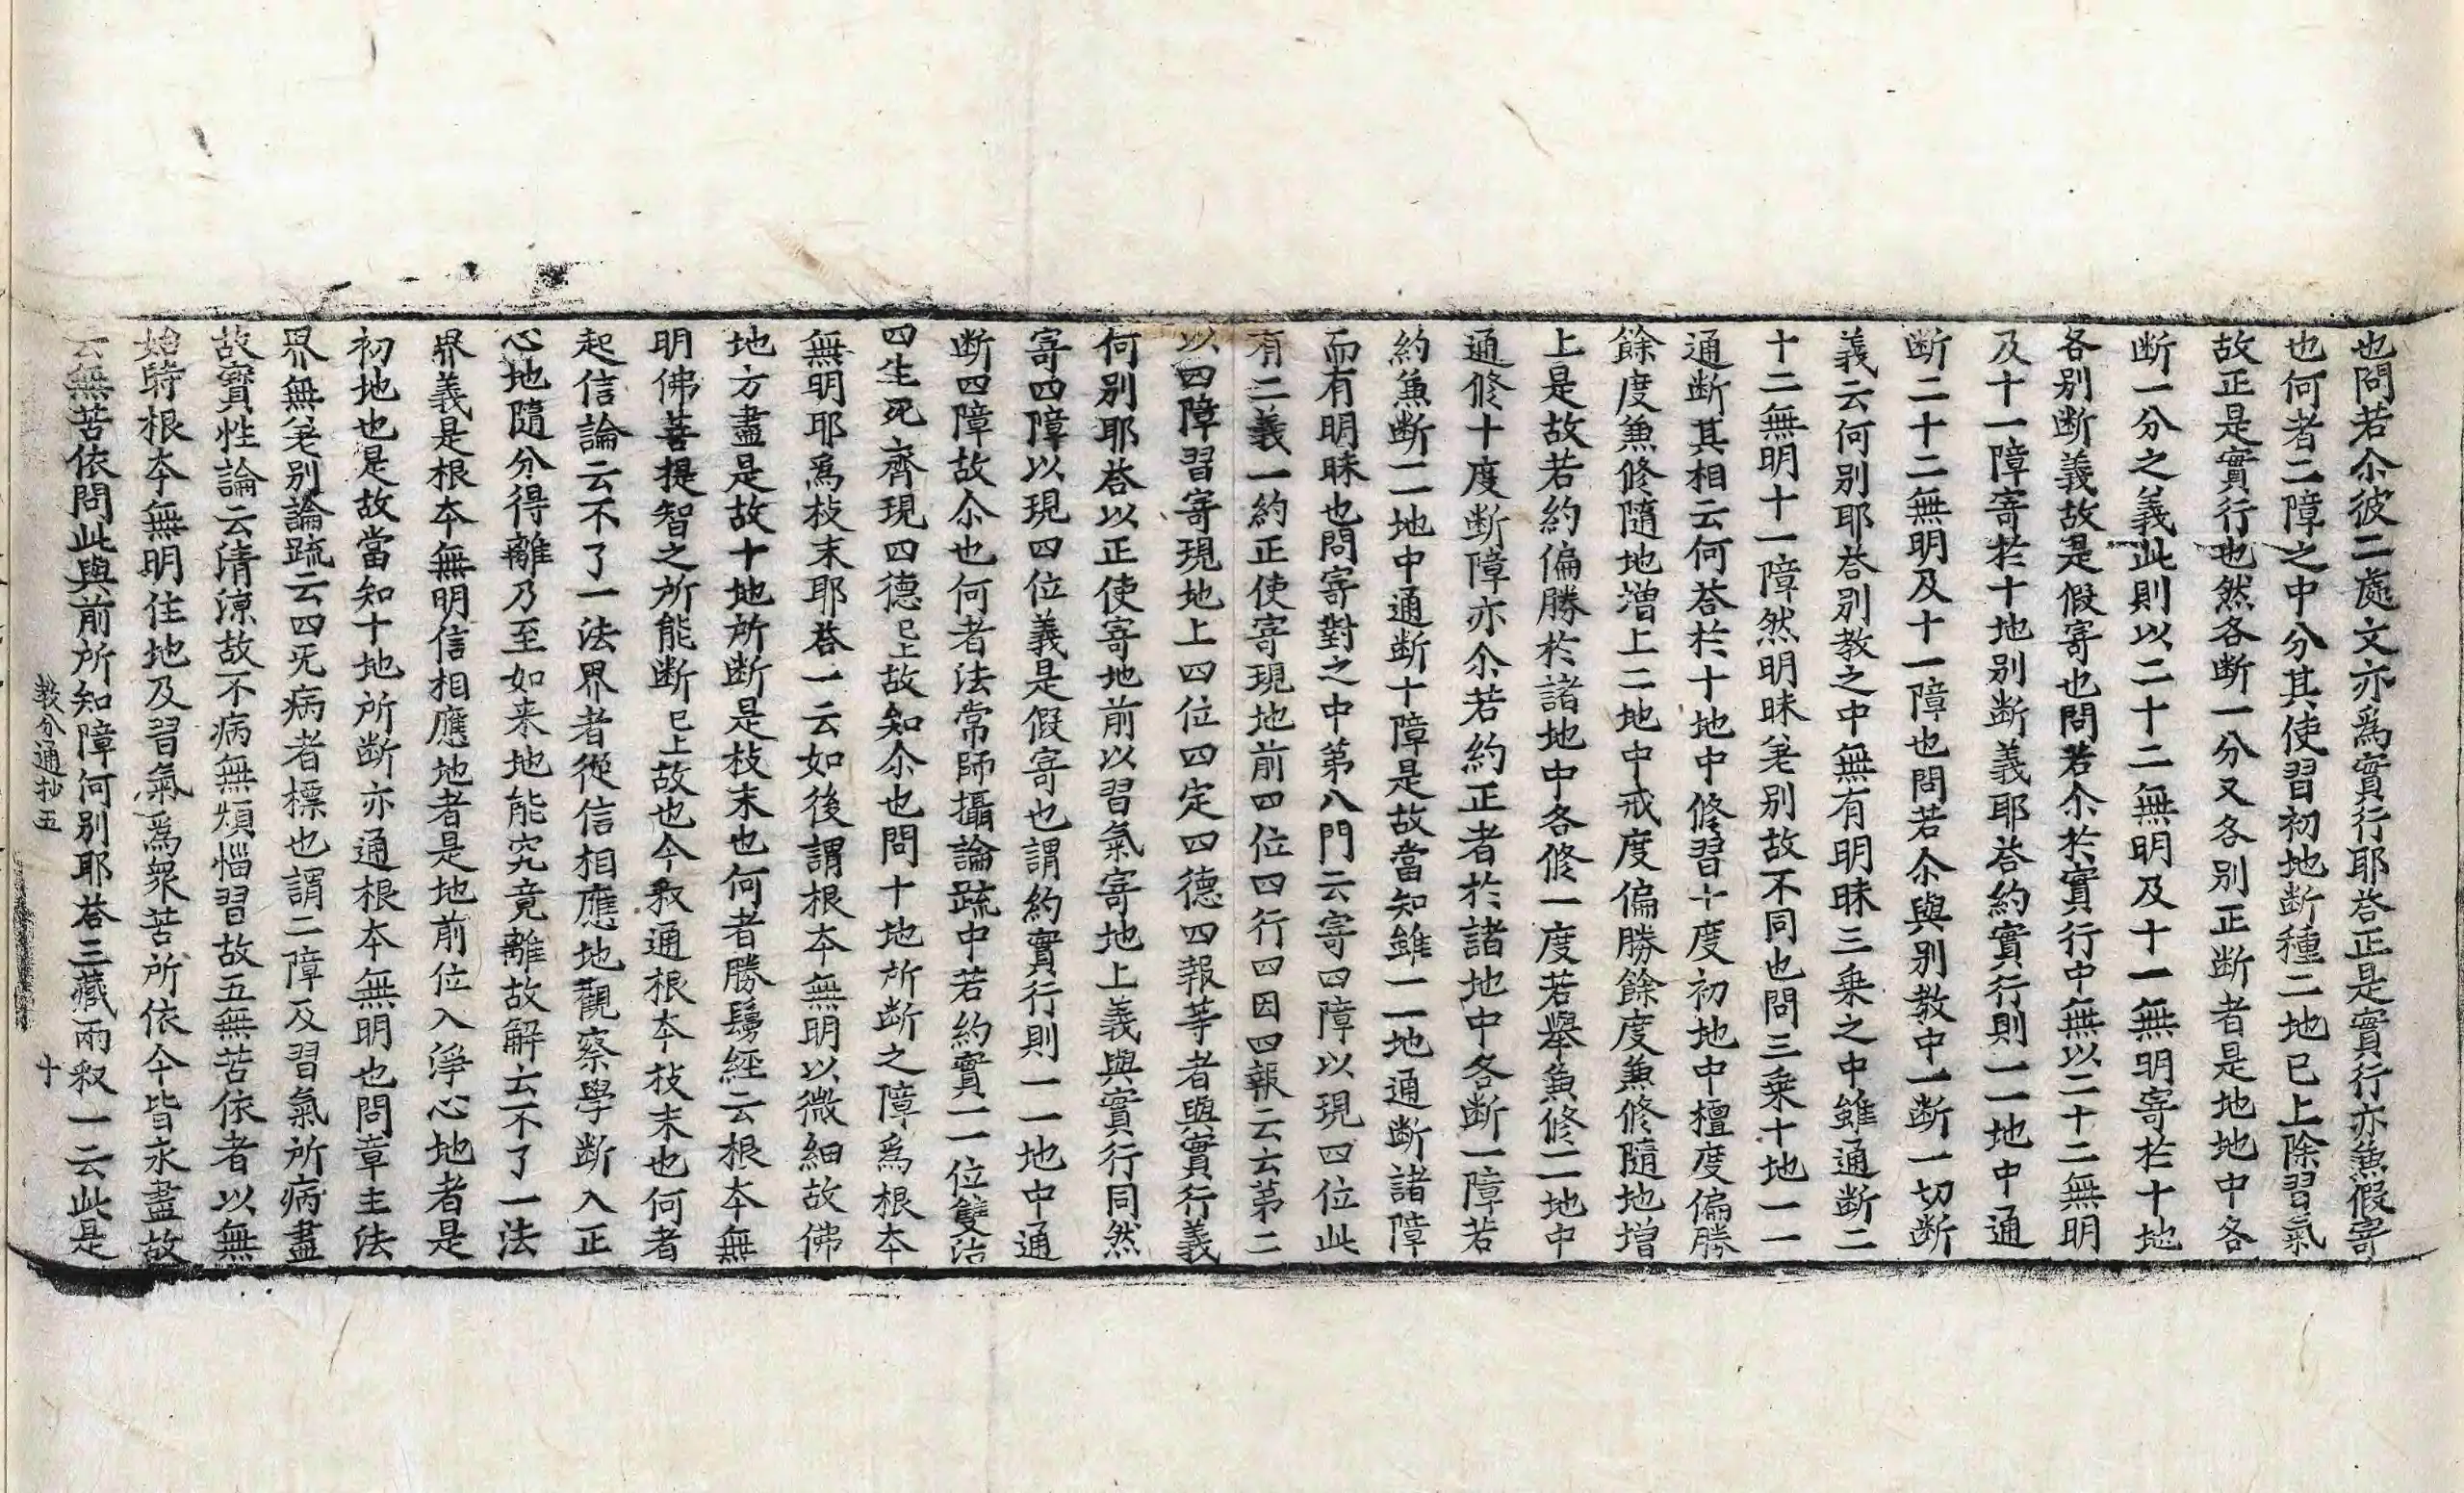 也問若尒彼二處文亦爲實行耶荅正是實行亦𩱙假寄
也何者二障之中分其使習初地断種二地已上除習氣
故正是實行也然各断一分又各別正断者是地地中各
断一分之義此則以二十二無明及十一無明寄於十地
各別断義故是假寄也問若尒於實行中無以二十二無明
及十一障寄於十地別断義耶荅約實行則一一地中通
断二十二無明及十一障也問若尒與別教中一断一切断
義云何別耶荅別教之中無有明昧三乗之中雖通断二
十二無明十一障然明昧差別故不同也問三乗十地一一
通断其相云何荅於十地中修習十度初地中檀度偏勝
餘度𩱙修隨地增上二地中戒度偏勝餘度𩱙修隨地增
上是故若約偏勝於諸地中各修一度若舉𩱙修一一地中
通修十度断障亦尒若約正者於諸地中各断一障若
約𩱙断一一地中通断十障是故當知雖一一地通断諸障
而有明昧也問寄對之中第八門云寄四障以現四位此
有二義一約正使寄現地前四位四行四因四報云云第二
以四障習寄現地上四位四定四德四報等者與實行義
何別耶荅以正使寄地前以習氣寄地上義與實行同然
寄四障以現四位義是假寄也謂約實行則一一地中通
断四障故尒也何者法常師攝論䟽中若約實一一位雙治
四生死齊現四德已上故知尒也問十地所断之障爲根夲
無明耶爲枝末耶荅一云如後謂根夲無明以微細故佛
地方盡是故十地所断是枝末也何者勝鬘經云根夲無
明佛菩提智之所能断已上故也今𥼶通根夲枝末也何者
起信論云不了一法界者從信相應地觀察學断入正
心地隨分得離乃至如来地能究竟離故解云不了一法
界義是根夲無明信相應地者是地前位入淨心地者是
初地也是故當知十地所断亦通根夲無明也問章主法
界無差別論䟽云四无病者標也謂二障及習氣所病盡
故寶性論云清涼故不病無煩惱習故五無苦依者以無
始時根夲無明住地及習氣爲衆苦所依今皆永盡故
云無苦依問此與前所知障何別耶荅三藏兩𥼶一云此是
教分通抄五 十